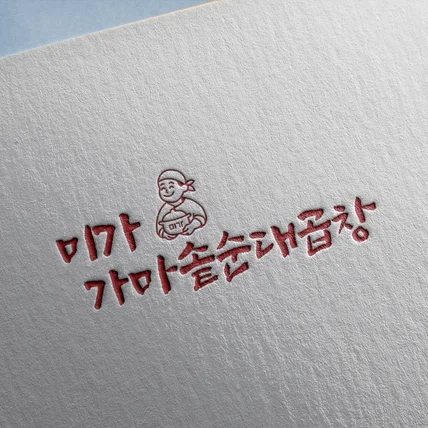 미가
가마솥순대곱창
미가